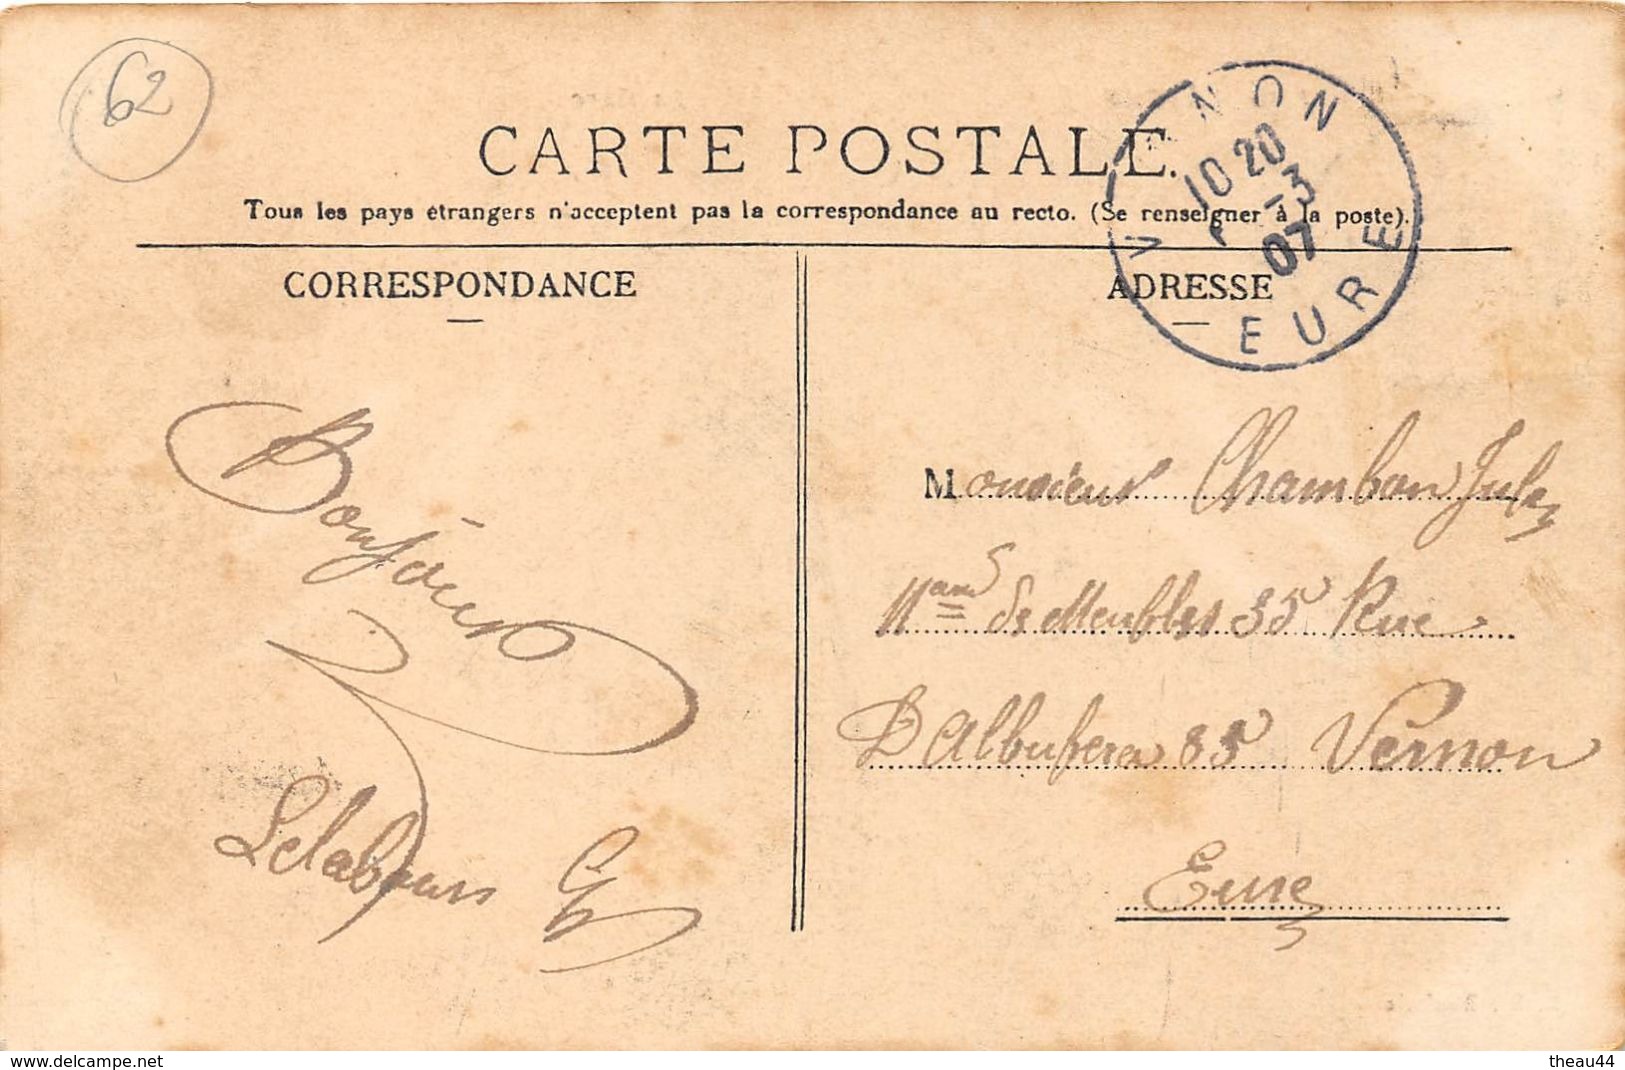 62
CARTE POSTALE.
Tous les pays étrangers n'acceptent pas la correspondance au recto. (Se renseigner à la poste).
VERNON
10 20
-3
07
EURE
CORRESPONDANCE
Bonjour
ADRESSE
Monsieur Chambon Jules
de Meubles 35 Rue
D'Albufera 35 Vernon
Eure
www.delcampe.net
theau44